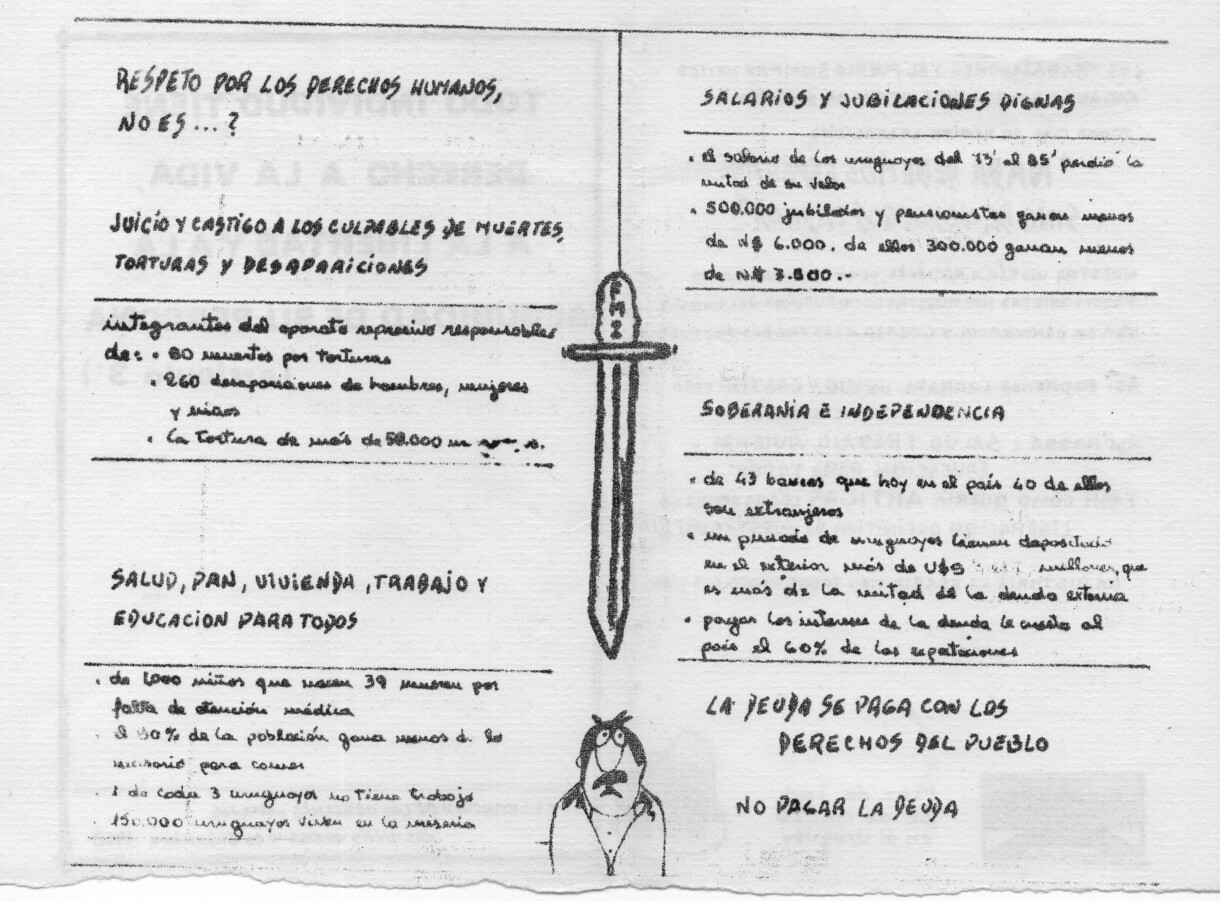 RESPETO POR LOS DERECHOS HUMANOS,
NO ES...?
JUICIO Y CASTIGO A LOS CULPABLES DE MUERTES,
TORTURAS Y DESAPARICIONES
integrantes del aparato represivo responsables
de: • 80 muertos por torturas
• 260 desapariciones de hombres, mujeres
y niños
• la tortura de más de 50.000
SALUD, PAN, VIVIENDA, TRABAJO Y
EDUCACION PARA TODOS
• de 1000 niños que nacen 39 mueren por
falta de atención médica
• el 30% de la población gana menos de lo
necesario para comer
• 1 de cada 3 uruguayos no tiene trabajo
• 150.000 uruguayos viven en la miseria
FMI
SALARIOS Y JUBILACIONES DIGNAS
• el salario de los uruguayos del 73' al 85' perdió la
mitad de su valor
• 500.000 jubilados y pensionistas ganan menos
de N$ 6.000. de ellos 300.000 ganan menos
de N$ 3.800.-
SOBERANIA E INDEPENDENCIA
• de 43 bancos que hoy en el país 40 de ellos
son extranjeros
• un puñado de uruguayos tienen depositado
en el exterior más de U$S millones, que
es más de la mitad de la deuda externa
• pagar los intereses de la deuda le cuesta al
país el 60% de las exportaciones
LA DEUDA SE PAGA CON LOS
DERECHOS DEL PUEBLO
NO PAGAR LA DEUDA